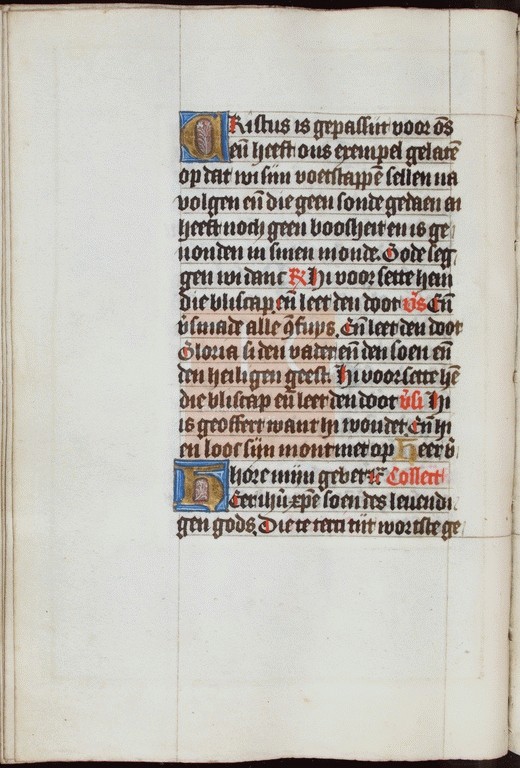 CRistus is gepassiit voor ōs
eñ heeft ons exempel gelatē
op dat wi sijn voetstappē sellen na
volgen eñ die geen sonde gedaen en
heeft noch geen boosheit en is ge
uonden in sinen monde. Gode seg
gen wi danc R Hi voor sette hem
die bliscap eñ leet den doot v̄s Eñ
v̄smade alle
Eñ leet den doot
Gloria si den vader eñ den soen eñ
den heiligen geest. Hi voor sette hē
die bliscap eñ leet den doot Hi
is geoffert want hi woudet Eñ hi
en loos sijn mont niet op Heer v̄
hore mijn gebet Collect
HEer ihū xp̄e soen des leuendi
gen gods, Die te terci tijt wortste ge